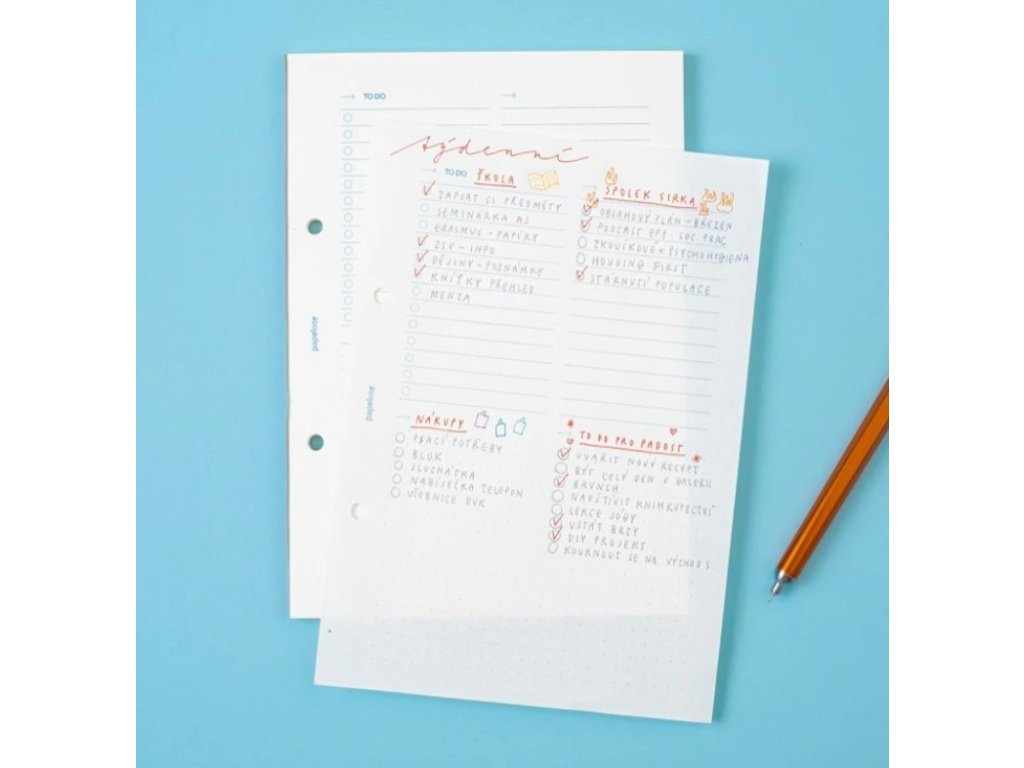 TO DO
papelote
týdenní
TO DO ŠKOLA
ZAPSAT SI PŘEDMĚTY
SEMINÁRKA AJ
ERASMUS - PAPÍRY
ZSV - INFO
DĚJINY - POZNÁMKY
KNÍŽKY PŘEHLED
MENZA
SPOLEK SIRKA
OBSAHOVÝ PLÁN - BŘEZEN
PODCAST EP1 SOC. PRAC
ZKOUŠKOVÉ + PSYCHOHYGIENA
HOUSING FIRST
STÁRNUTÍ POPULACE
papelote
NÁKUPY
PSACÍ POTŘEBY
BLOK
SLUCHÁTKA
NABÍJEČKA TELEFON
UČEBNICE DVK
TO DO PRO RADOST
UVAŘIT NOVÝ RECEPT
BÝT CELÝ DEN V GALERII
BRUNCH
NAVŠTÍVIT KNIHKUPECTVÍ
LEKCE JÓGY
VSTÁT BRZY
DIY PROJEKT
KOUKNOUT SE NA VÝCHOD S.